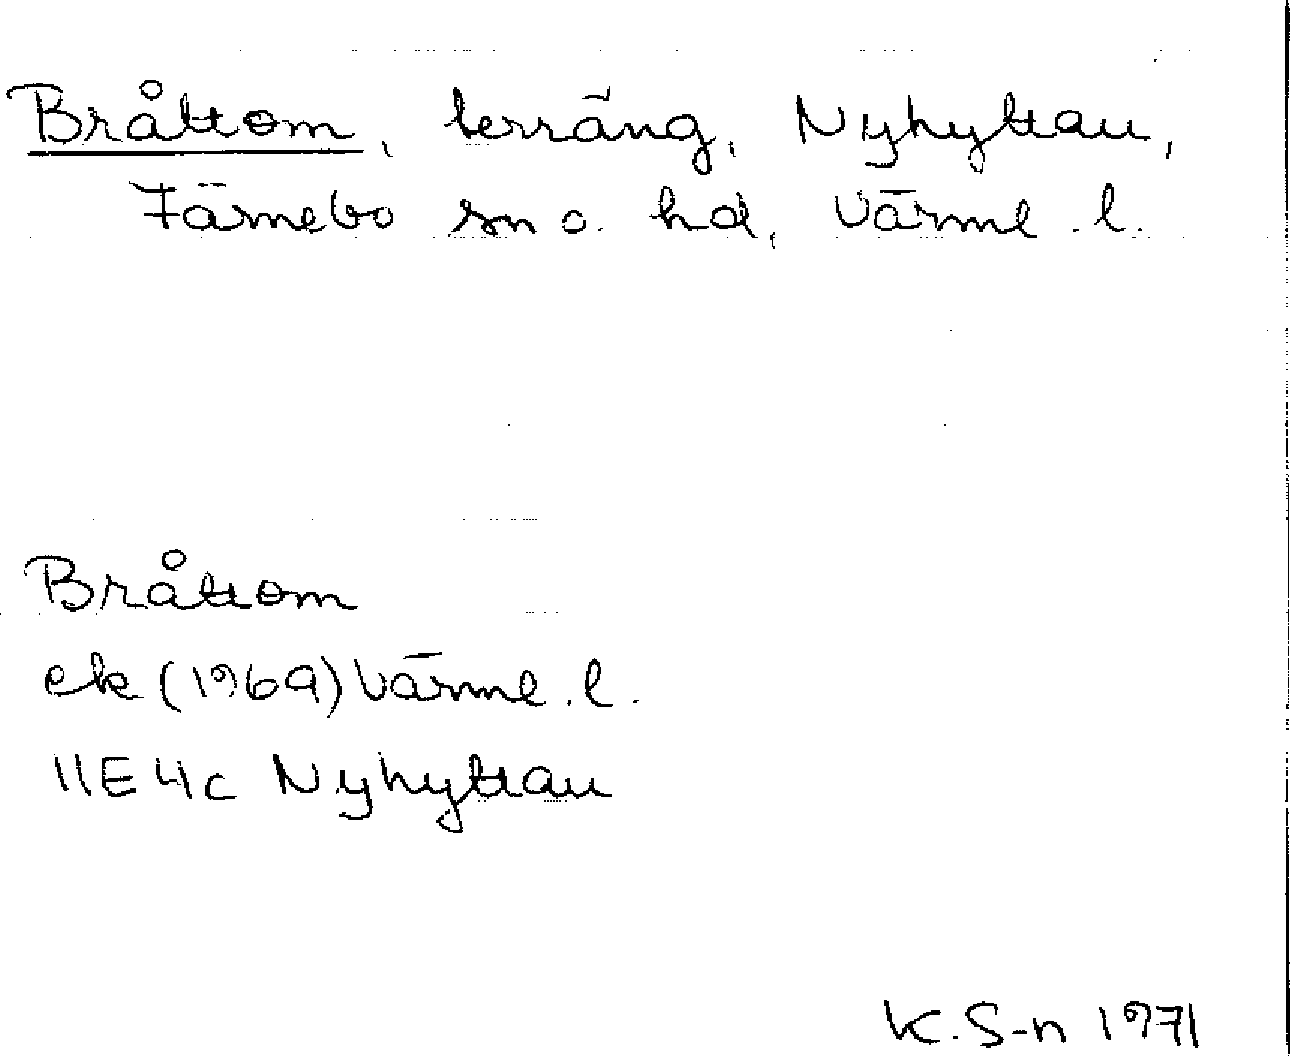 Bråttom, terräng, Nyhyttan,
Färnebo sn o. hd, Värml. l.
Bråttom
ek (1969) Värml. l.
11E 4c Nyhyttan
K. S-n 1971